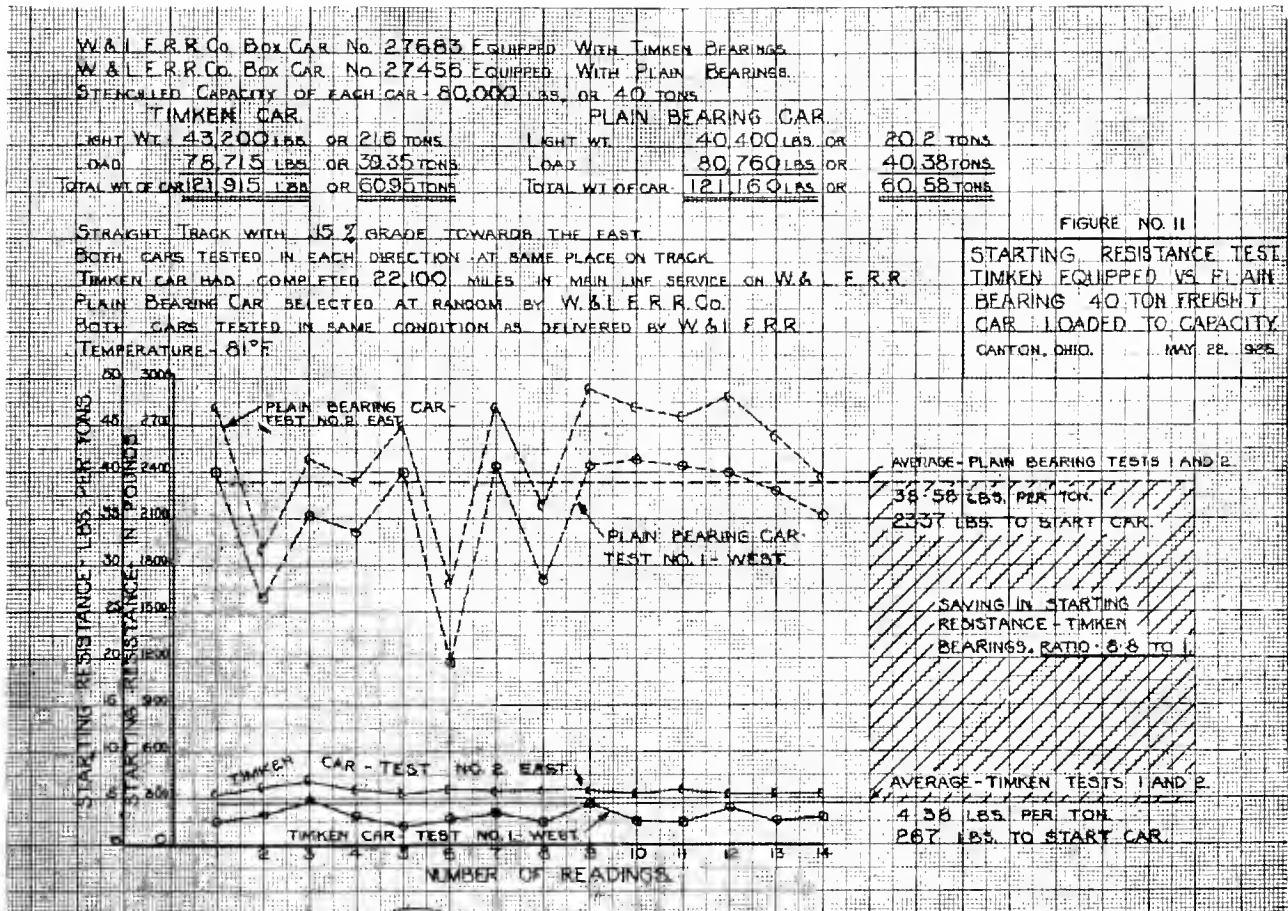 W & L E. R. R. Co. Box Car No. 27683 Equipped With Timken Bearings.
W & L. E. R. R. Co. Box Car No. 27456 Equipped With Plain Bearings.
Stencilled Capacity of Each Car - 80,000 lbs. or 40 tons
TIMKEN CAR.
Light Wt. 43,200 lbs or 21.6 tons
Load 78,715 lbs or 39.35 tons
Total Wt. of Car 121,915 lbs or 60.95 tons
PLAIN BEARING CAR.
Light Wt. 40,400 lbs or 20.2 tons
Load 80,760 lbs or 40.38 tons
Total Wt of Car - 121,160 lbs or 60.58 tons
Straight Track with .15 % Grade Towards the East
Both Cars Tested in Each Direction at Same Place on Track
Timken Car Had Completed 22,100 Miles in Main Line Service on W. & L E. R. R.
Plain Bearing Car Selected at Random by W. & L E R. R. Co.
Both Cars Tested in Same Condition as Delivered by W & L E. R. R
Temperature - 81°F
FIGURE NO. 11
STARTING RESISTANCE TEST.
TIMKEN EQUIPPED VS PLAIN
BEARING 40 TON FREIGHT
CAR LOADED TO CAPACITY
CANTON, OHIO. MAY 22. 1925
STARTING RESISTANCE - LBS. PER TONS.
STARTING RESISTANCE. IN POUNDS
50 3000
45 2700
40 2400
35 2100
30 1800
25 1500
20 1200
900
600
300
0 0
PLAIN BEARING CAR -
TEST NO. 2 EAST
PLAIN BEARING CAR -
TEST NO. 1 - WEST.
AVERAGE - PLAIN BEARING TESTS 1 AND 2.
38.58 LBS. PER TON.
2337 LBS. TO START CAR.
SAVING IN STARTING
RESISTANCE - TIMKEN
BEARINGS. RATIO - 8.8 TO 1.
TIMKEN CAR - TEST NO. 2 EAST
TIMKEN CAR TEST NO. 1 - WEST.
AVERAGE - TIMKEN TESTS 1 AND 2.
4.38 LBS. PER TON.
267 LBS. TO START CAR.
2 3 4 5 6 7 8 9 10 11 12 13 14
NUMBER OF READINGS.